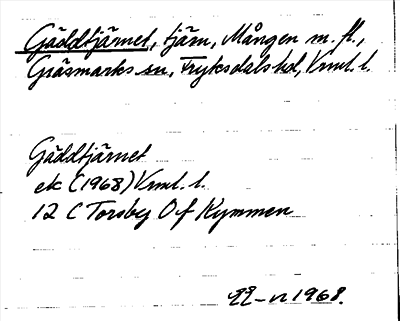 Gäddtjärnet, tjärn, Mången m. fl.,
Gräsmarks sn, Fryksdals hd, Vrml. l.
Gäddtjärnet
ek (1968) Vrml. l.
12 C Torsby 0 f Kymmen
1968.